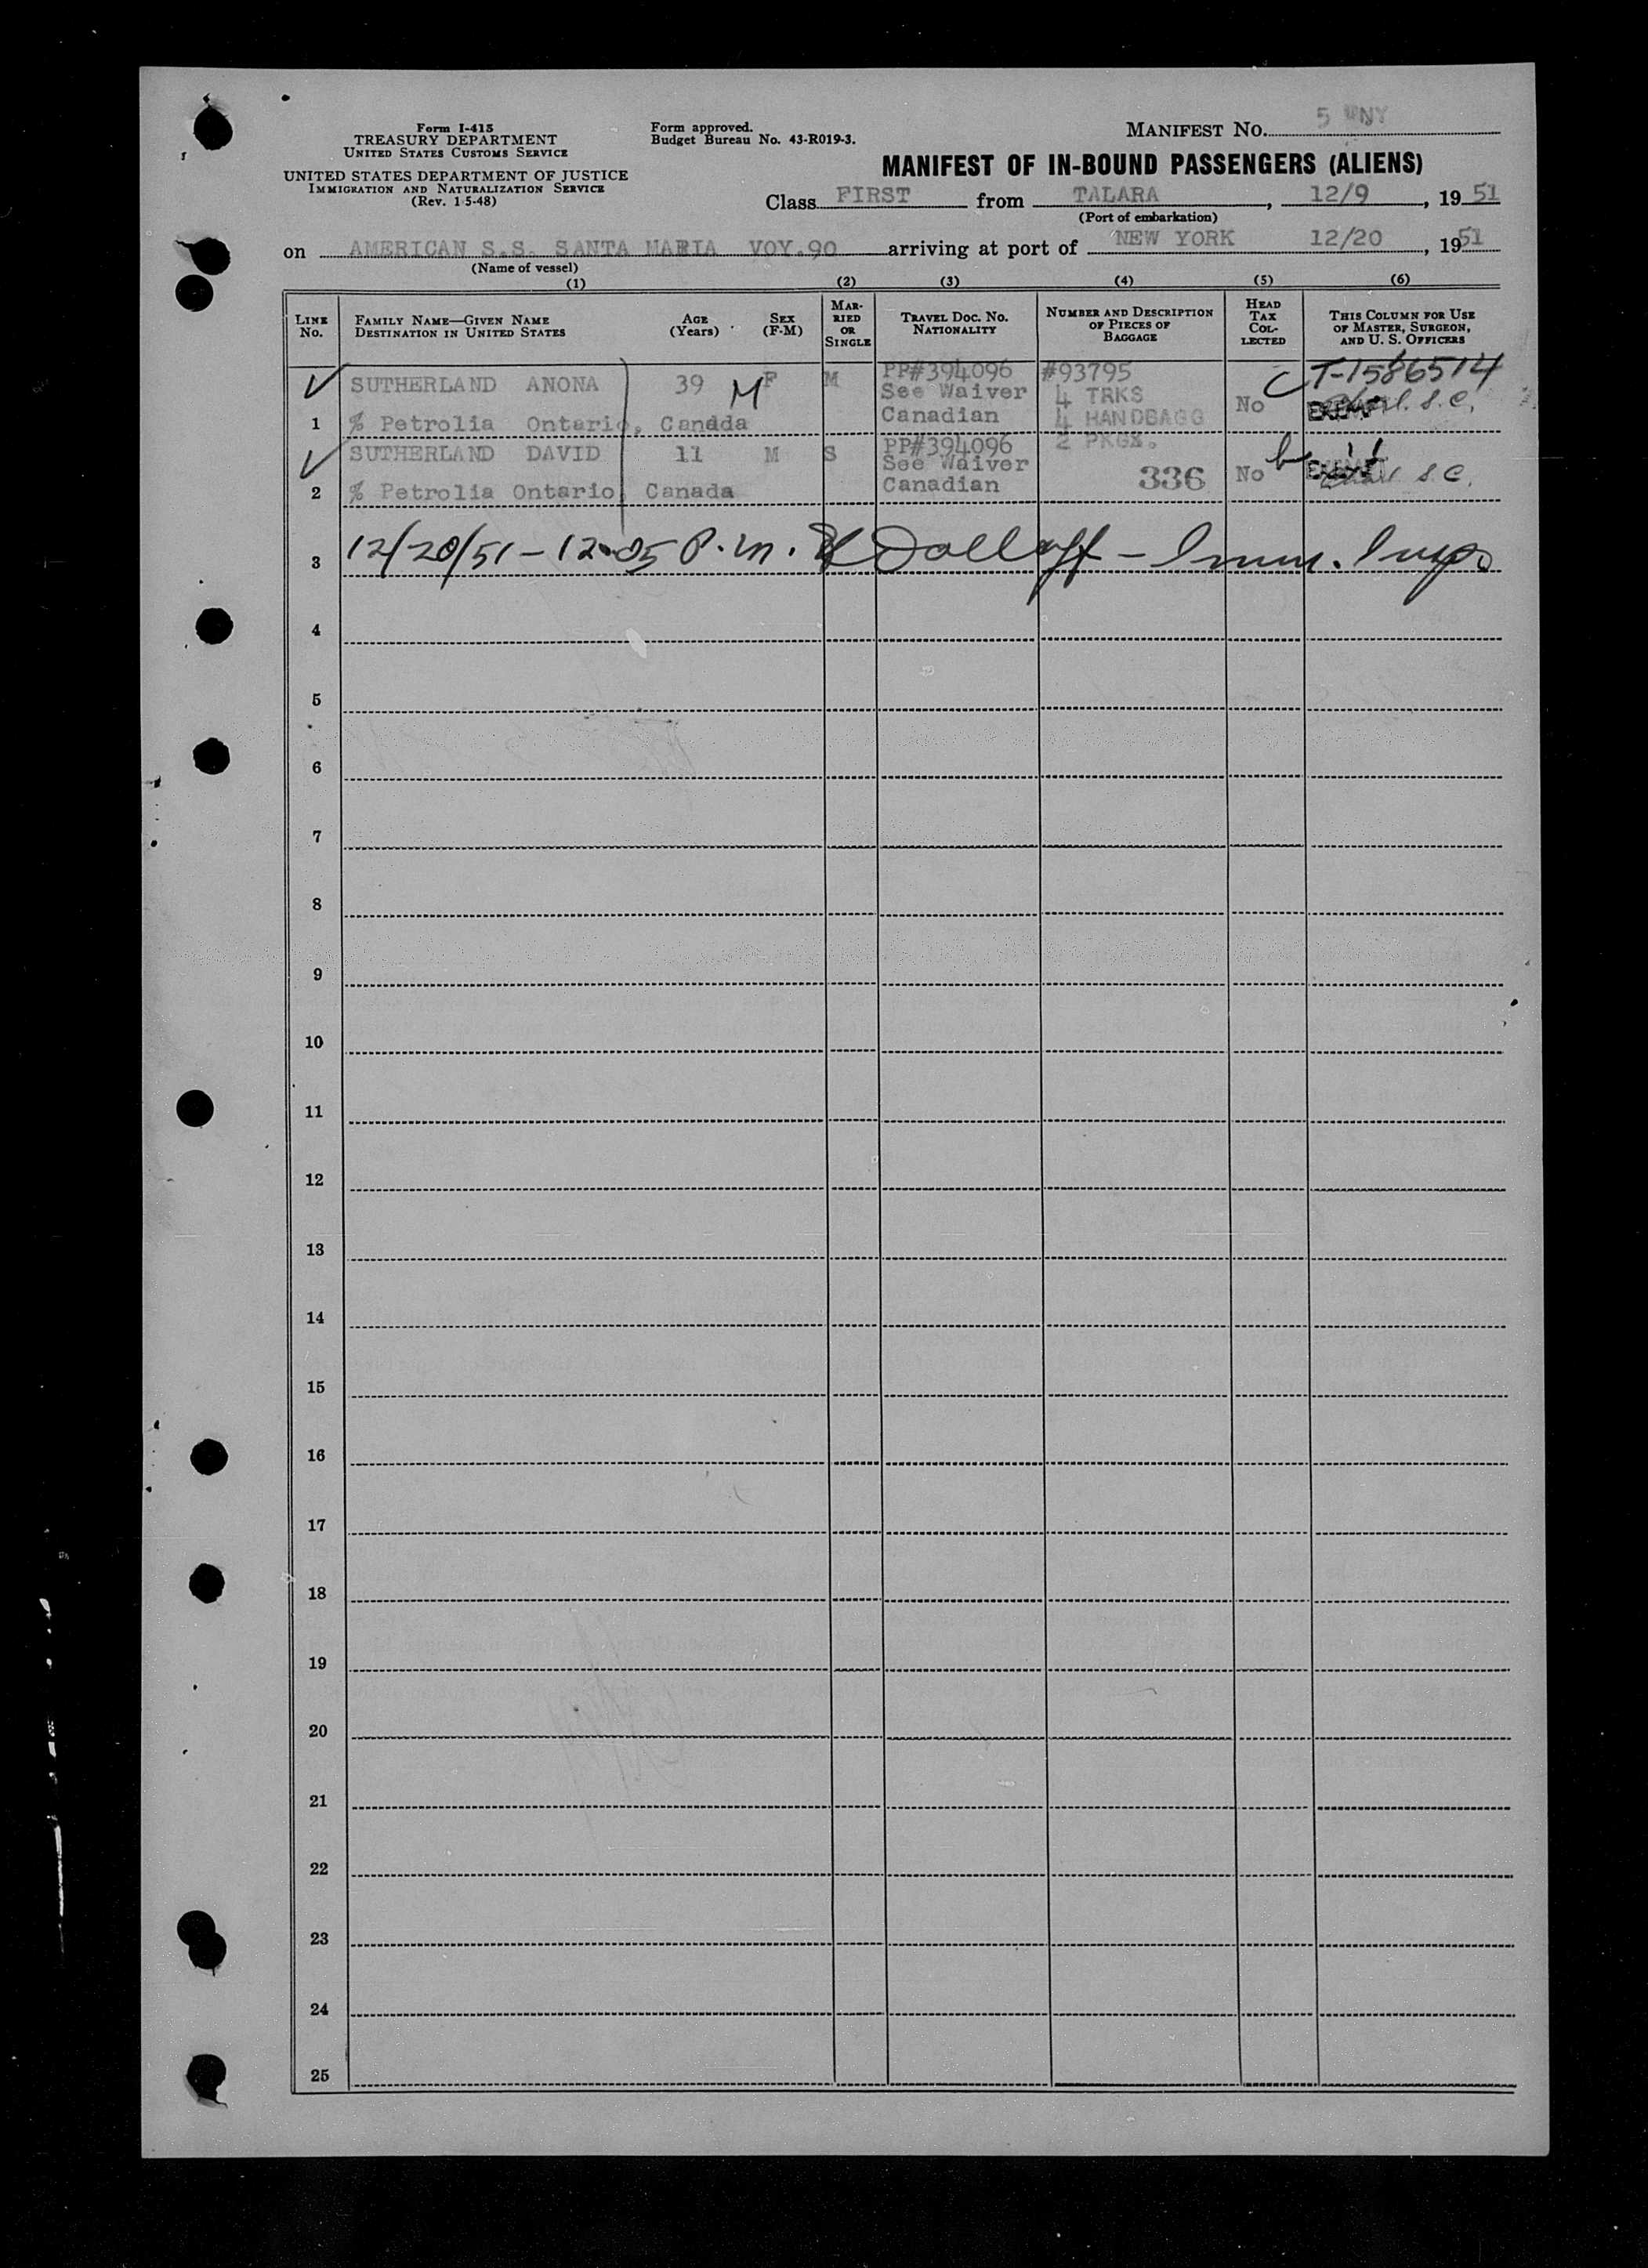 Form I-415
TREASURY DEPARTMENT
UNITED STATES CUSTOMS SERVICE
UNITED STATES DEPARTMENT OF JUSTICE
IMMIGRATION AND NATURALIZATION SERVICE
(Rev. 1-5-48)
Form approved.
Budget Bureau No. 43-R019-3.
MANIFEST NO. 5 NY
MANIFEST OF IN-BOUND PASSENGERS (ALIENS)
Class FIRST from TALARA, 12/9, 1951
(Port of embarkation)
on AMERICAN S.S. SANTA MARIA VOY.90 arriving at port of NEW YORK 12/20, 1951
(Name of vessel)
(1) (2) (3) (4) (5) (6)
LINE No. FAMILY NAME—GIVEN NAME DESTINATION IN UNITED STATES AGE (Years) SEX (F-M) MARRIED OR SINGLE TRAVEL DOC. NO. NATIONALITY NUMBER AND DESCRIPTION OF PIECES OF BAGGAGE HEAD TAX COLLECTED THIS COLUMN FOR USE OF MASTER, SURGEON, AND U. S. OFFICERS
SUTHERLAND ANONA 39 M F M PP#394096 #93795 T-1586514
See Waiver 4 TRKS
1 % Petrolia Ontario, Canada Canadian 4 HANDBAGG No EXEMPT S.C.
SUTHERLAND DAVID 11 M S PP#394096 2 PKGS.
See Waiver
2 % Petrolia Ontario, Canada Canadian 336 No S.C.
3 12/20/51 - 12.05 P.m. Dolloff - Imm. Insp.
4
5
6
7
8
9
10
11
12
13
14
15
16
17
18
19
20
21
22
23
24
25